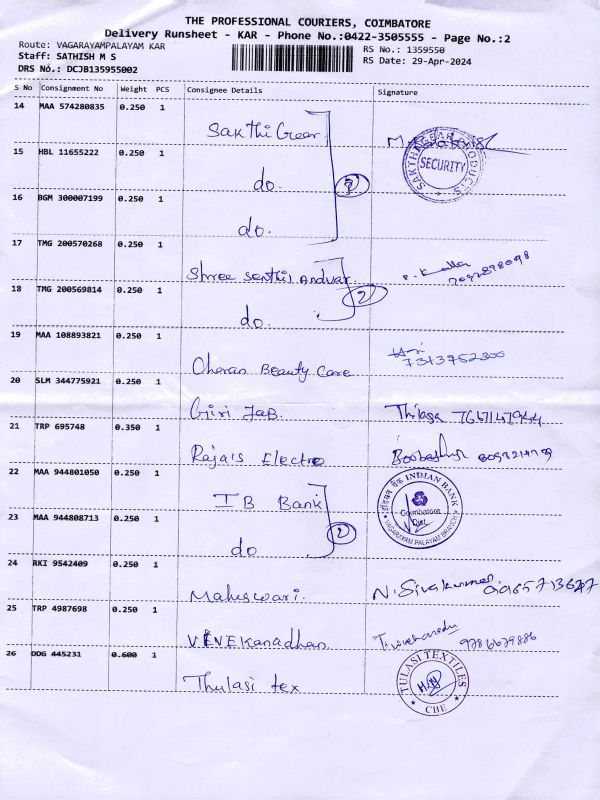 THE PROFESSIONAL COURIERS, COIMBATORE
Delivery Runsheet - KAR - Phone No.:0422-3505555 - Page No.:2
Route: VAGARAYAMPALAYAM KAR
RS No.: 1359550
Staff: SATHISH M S
RS Date: 29-Apr-2024
DRS No.: DCJB135955002
S No Consignment No Weight PCS Consignee Details Signature
14 MAA 574280835 0.250 1 Sakthi Gear
15 HBL 11655222 0.250 1 do.
SAKTHI GEAR PRODUCTS
SECURITY
16 BGM 300007199 0.250 1 do.
17 TMG 200570268 0.250 1 Shree Senthil Andvar
18 TMG 200569814 0.250 1 do.
2
19 MAA 108893821 0.250 1 Cheran Beauty Care 7373752300
20 SLM 344775921 0.250 1 Giri Fab. Thilaga
21 TRP 695748 0.350 1 Raja's Electro
22 MAA 944801050 0.250 1 IB Bank
इंडियन बैंक INDIAN BANK
Coimbatore
Dist.
VAGARAYAM PALAYAM BRANCH
2
23 MAA 944808713 0.250 1 do
24 RKI 9542409 0.250 1 Maheswari. N. Sivakumar
25 TRP 4987698 0.250 1 VIVEKanadhan 9786679886
26 DDG 445231 0.600 1 Thulasi tex
TULASI TEXTILES
CBE